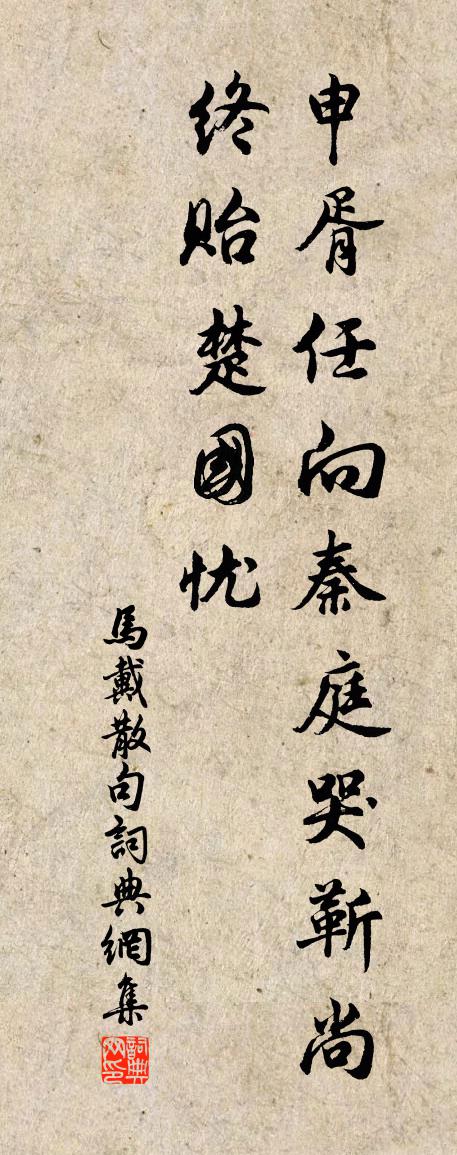 申胥任向秦庭哭靳尚
终贻楚國忧
馬戴散句詞典網集
詞典网印